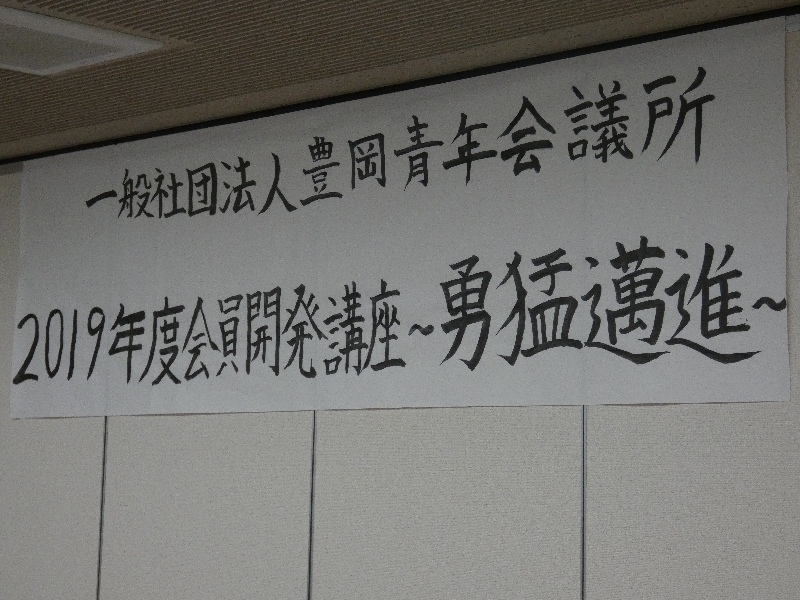 一般社団法人豊岡青年会議所
2019年度会員開発講座~勇猛邁進~